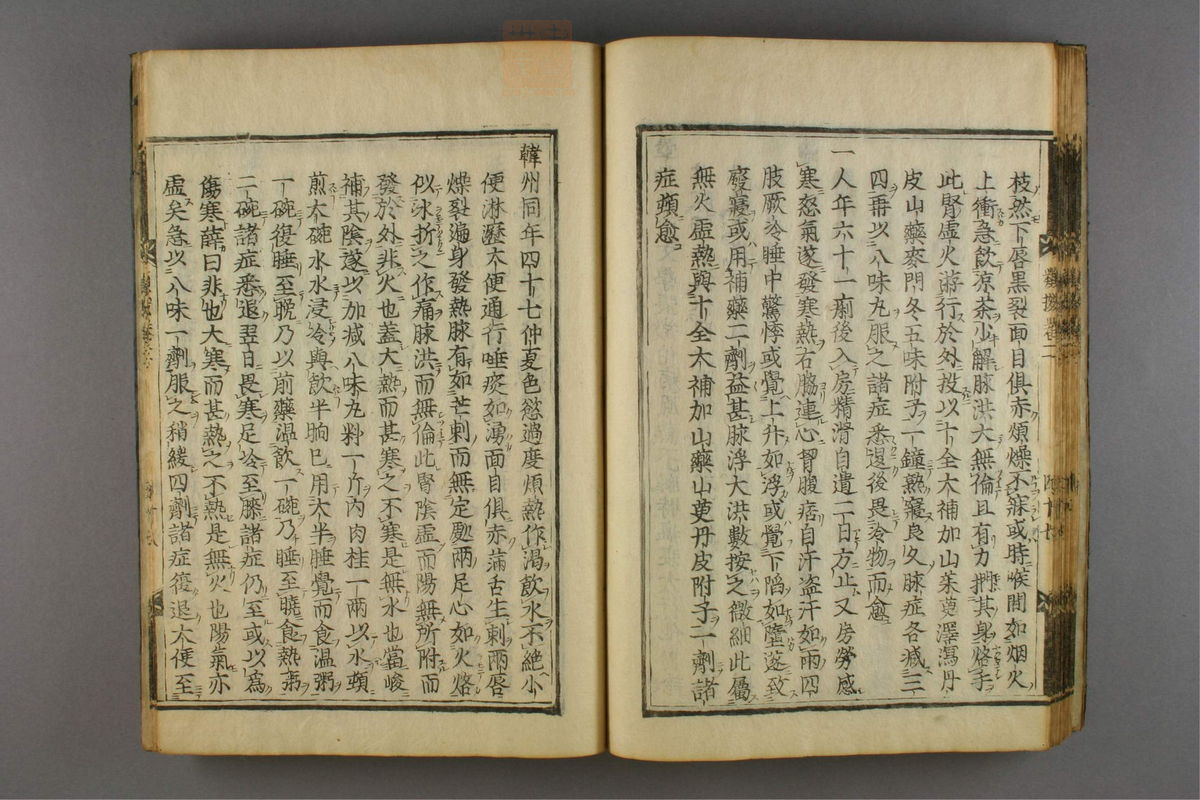 枝然下唇黒裂面目俱赤煩燥不寐或時喉間如烟火
上衝急飲凉茶少解脉洪大無倫且有力捫其身烙手
此腎虚火游行於外投以十全大補加山茱萸澤瀉丹
皮山藥麥門冬五味附子一鐘熟寢良久脉症各減三
四再以八味丸服之諸症悉退後畏冷物而愈
一人年六十一痢後入房精滑自遺二日方止又房勞感
寒怒氣遂發寒熱右脇連心胷腹痞自汗盗汗如雨四
肢厥冷睡中驚悸或覺上升如浮或覺下陷如墮遂致
廢寢或用補藥二劑益甚脉浮大洪數按之微細此屬
無火虚熱與十全大補加山藥山萸丹皮附子一劑諸
症頓愈
韓州同年四十七仲夏色慾過度煩熱作渴飲水不絶小
便淋瀝大便通行唾痰如湧面目俱赤滿舌生刺兩唇
燥裂遍身發熱脉有如芒刺而無定處兩足心如火烙
似冰折之作痛脉洪而無倫此腎陰虚而陽無所附而
發於外非火也蓋大熱而甚寒之不寒是無水也當峻
補其陰遂以加減八味丸料一斤內肉桂一兩以水頓
煎六碗水水浸冷與飲半晌已用大半睡覺而食温粥
一碗復睡至晩乃以前藥温飲一碗乃睡至曉食熱粥
二碗諸症悉退翌日畏寒足冷至膝諸症仍至或以爲
傷寒薛曰非也大寒而甚熱之不熱是無火也陽氣亦
虚矣急以八味一劑服之稍緩四劑諸症復退大便至